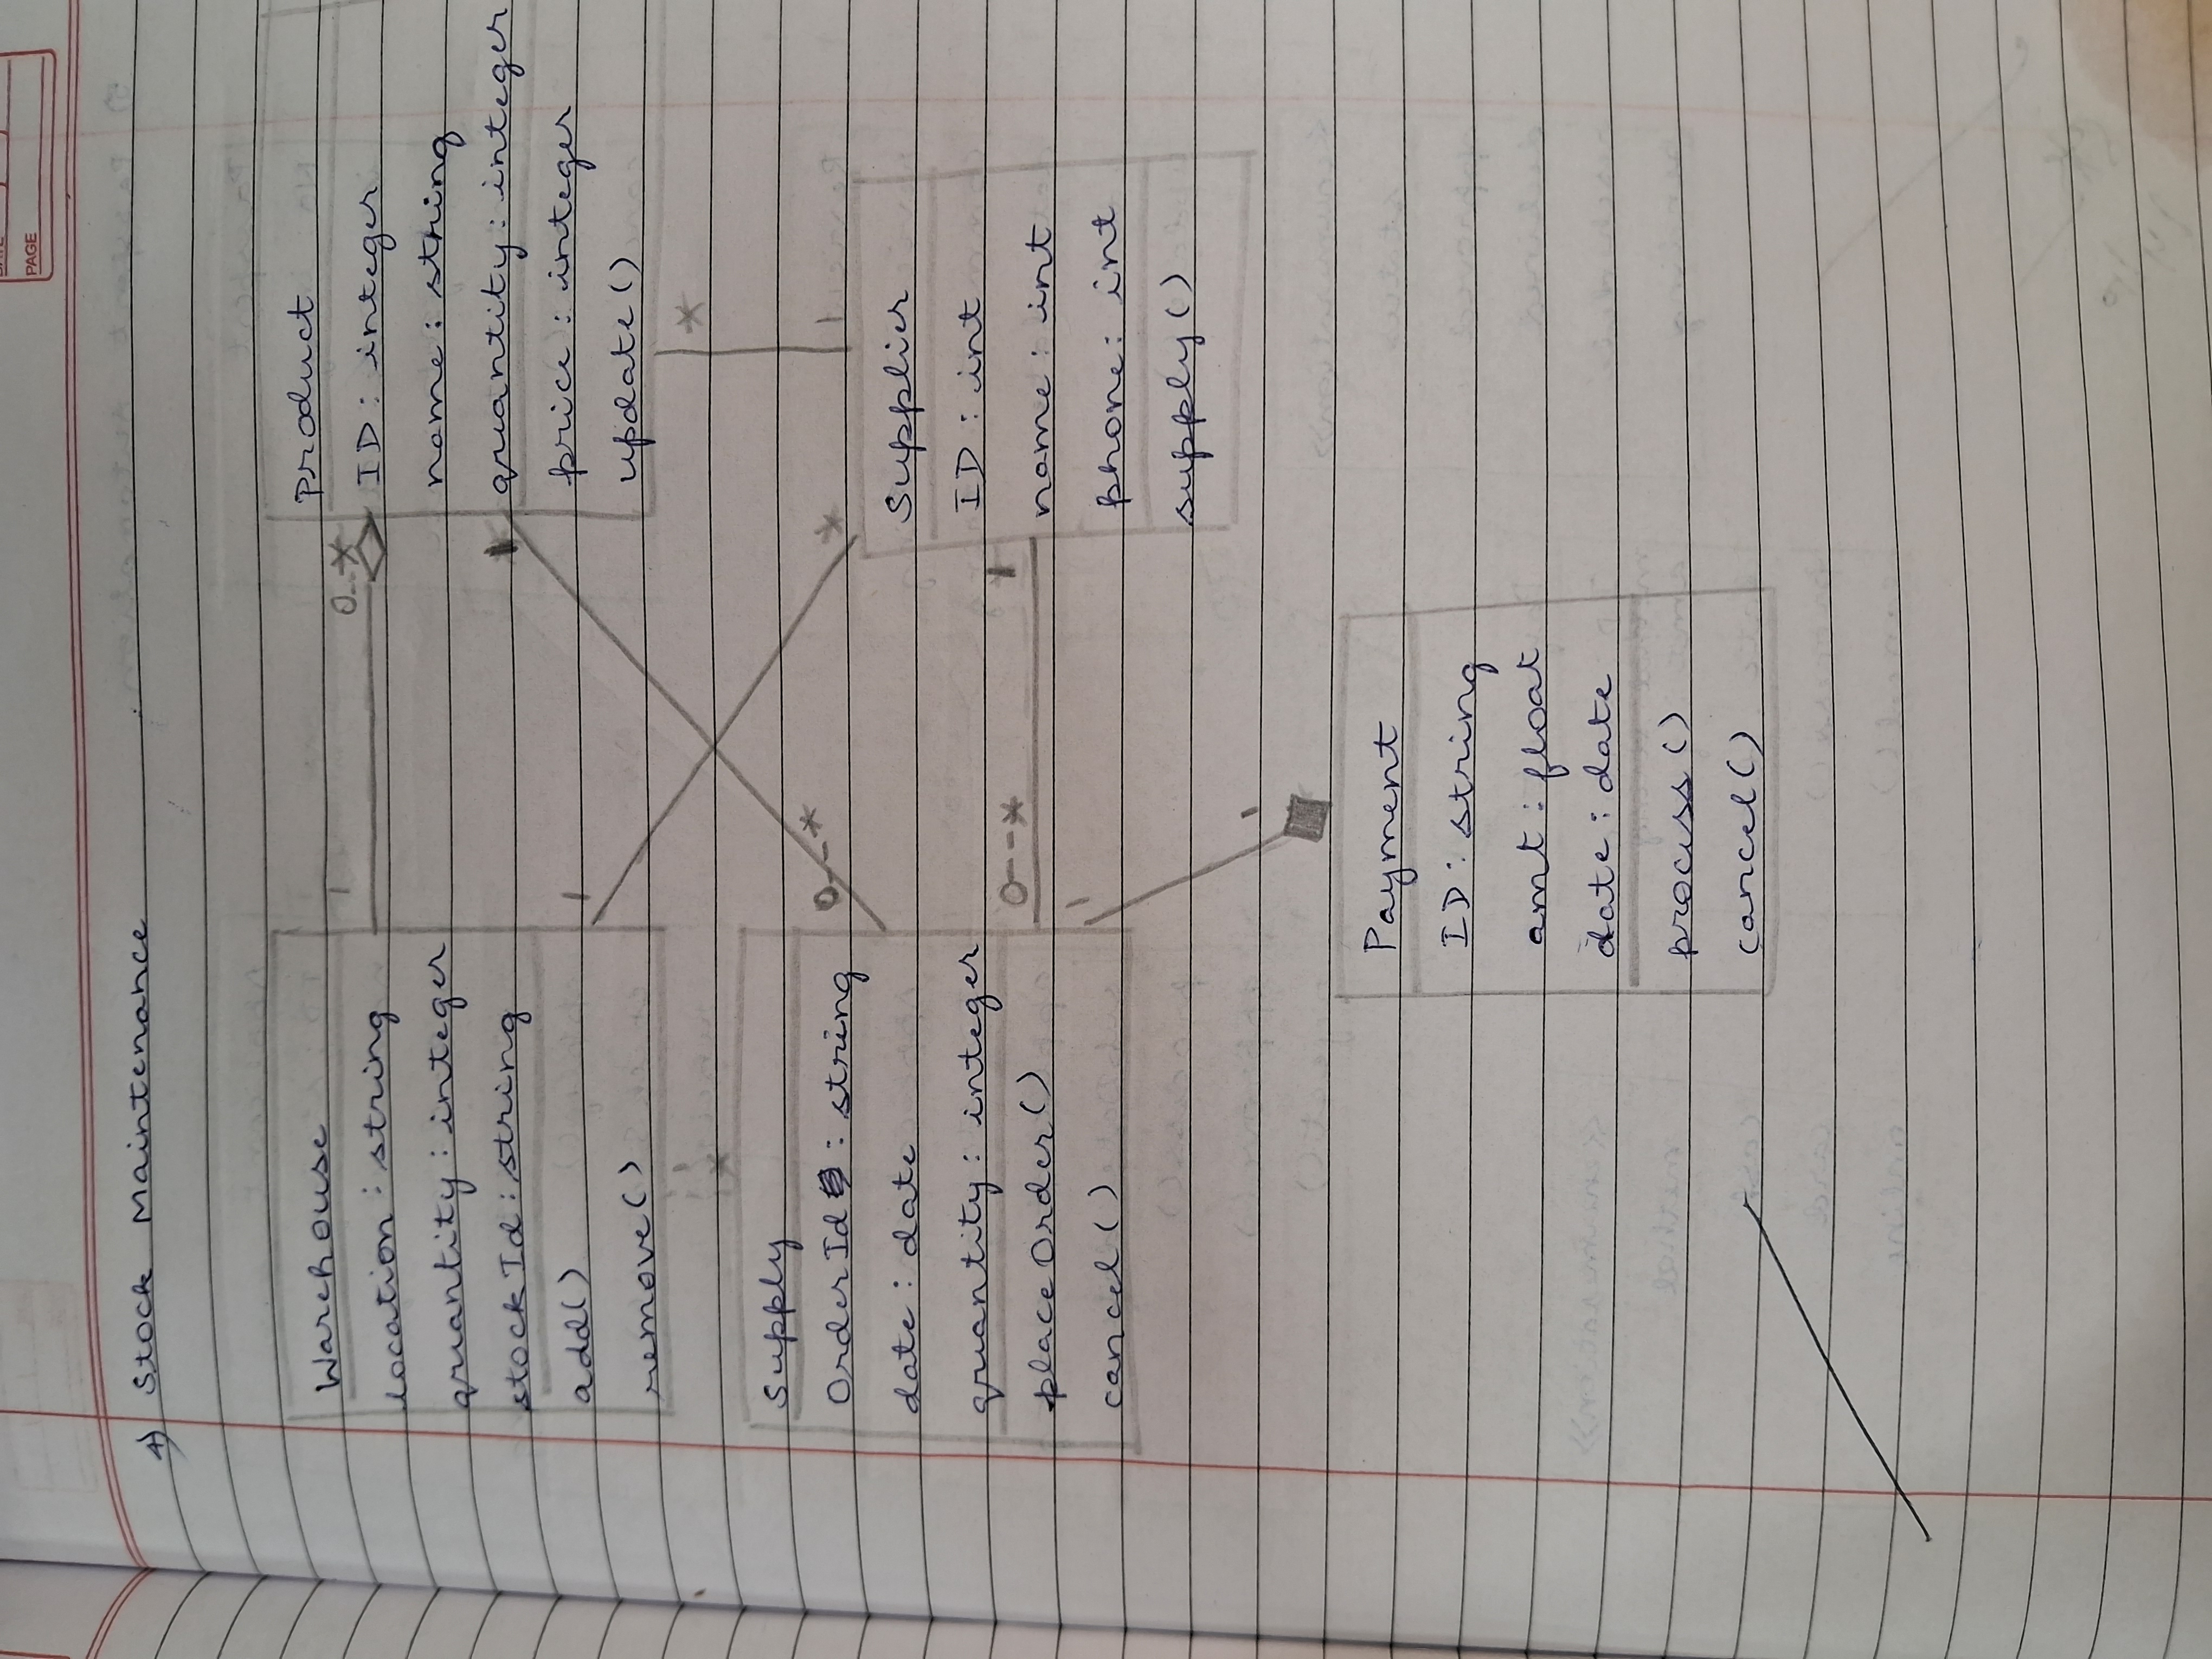 PAGE
4) Stock Maintenance
Warehouse
location : string
quantity : integer
stockId : string
add()
remove()
1
0..*
Product
ID : integer
name : string
quantity : integer
price : integer
update()
1
1
*
1
1
*
Supply
OrderId : string
date : date
quantity : integer
placeOrder()
cancel()
0--*
*
0--*
1
Supplier
ID : int
name : int
phone : int
supply()
1
1
Payment
ID : string
amt : float
date : date
process()
cancel()